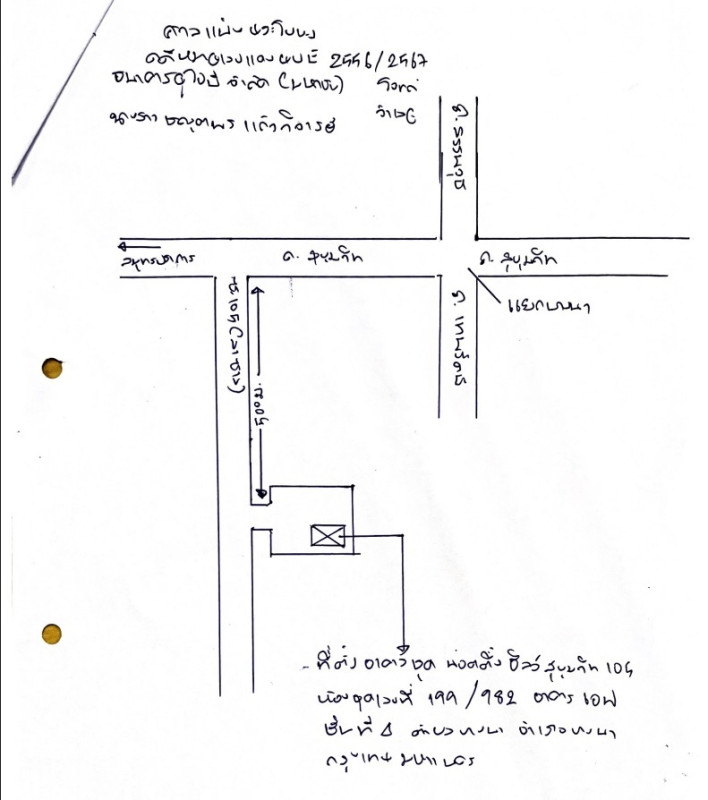 ศาลแพ่งพระโขนง
คดีหมายเลขแดง ผบE 2556/2567
ธนาคารยูโอบี จำกัด (มหาชน) โจทก์
นางสาว แก้ว จำเลย
ถ. สรรพาวุธ
สมุทรปราการ
ถ. สุขุมวิท
ถ. สุขุมวิท
แยกบางนา
ถ. เทพรัตน
ซ.105 (ลาซาล)
- ที่ตั้ง อาคารชุด ชีลว์ สุขุมวิท 105
ห้องชุดเลขที่ 199/982 อาคาร เอฟ
ชั้นที่ 4 ตำบล บางนา อำเภอ บางนา
กรุงเทพมหานคร